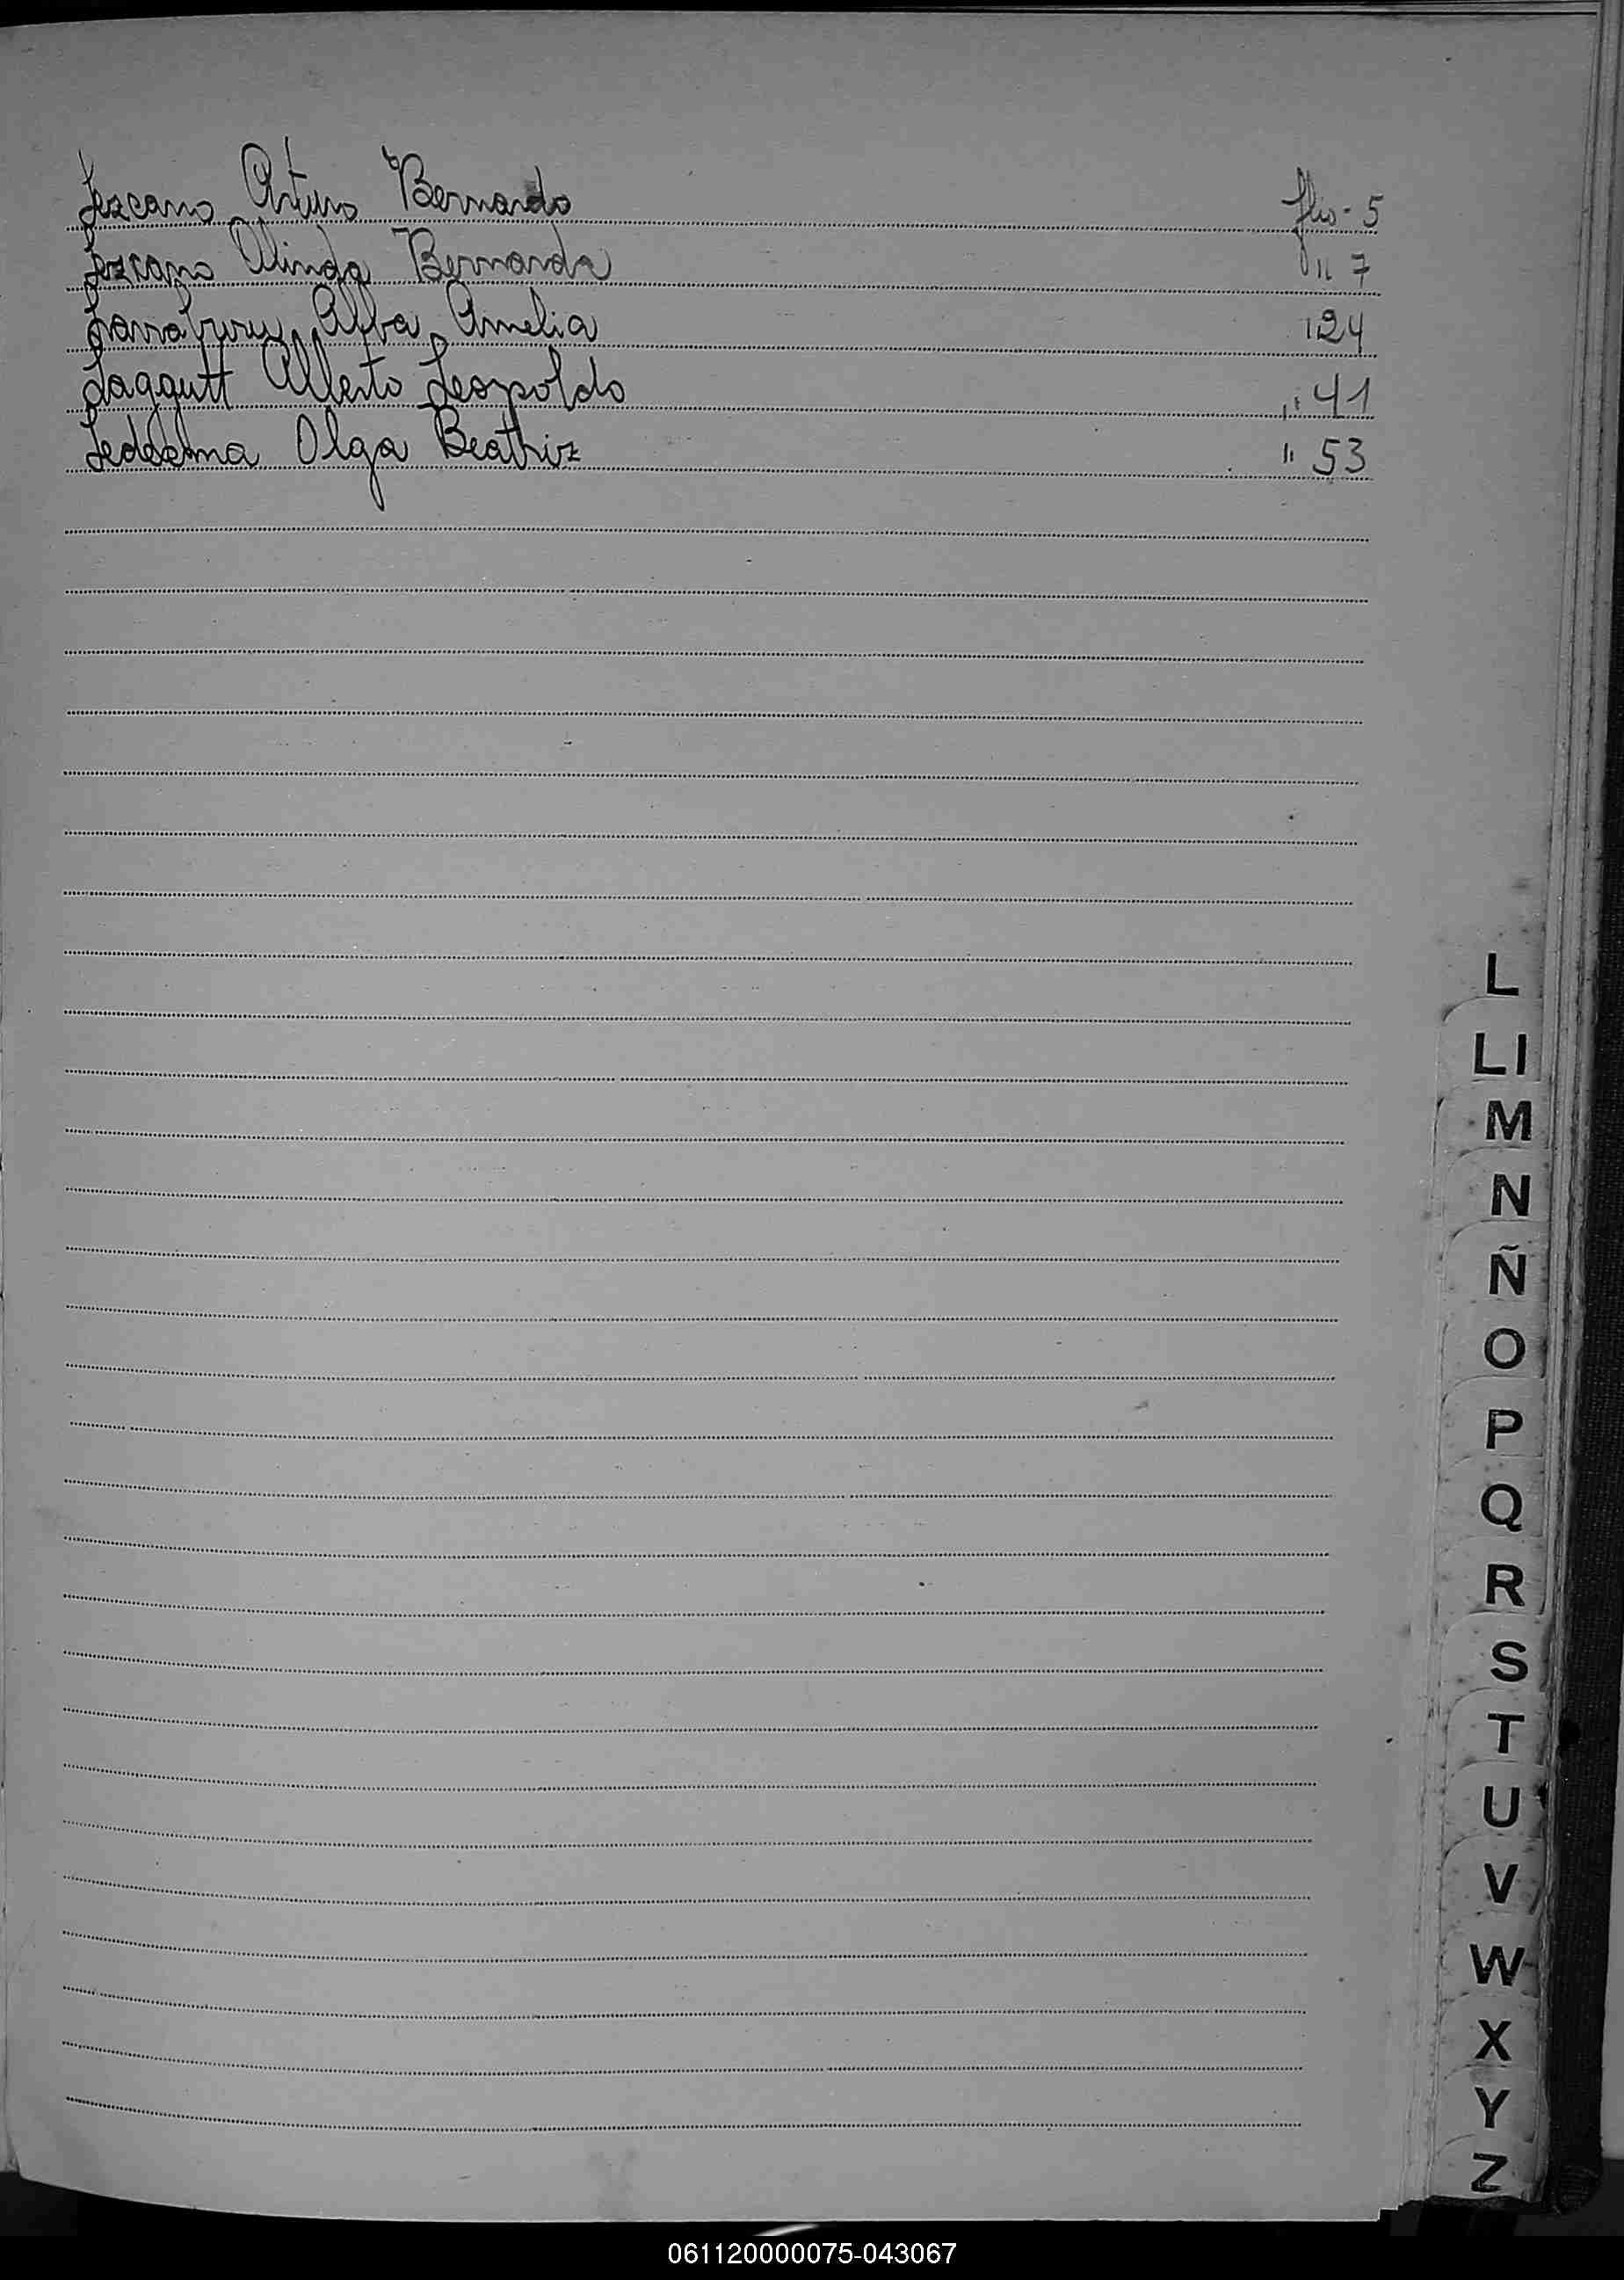 Lezcano Arturo Bernardo flio - 5
Lezcano Olinda Bernarda " 7
Larraburu Alba Amelia " 24
Laggutt Alberto Leopoldo " 41
Ledesma Olga Beatriz " 53
L
LI
M
N
Ñ
O
P
Q
R
S
T
U
V
W
X
Y
Z
061120000075-043067